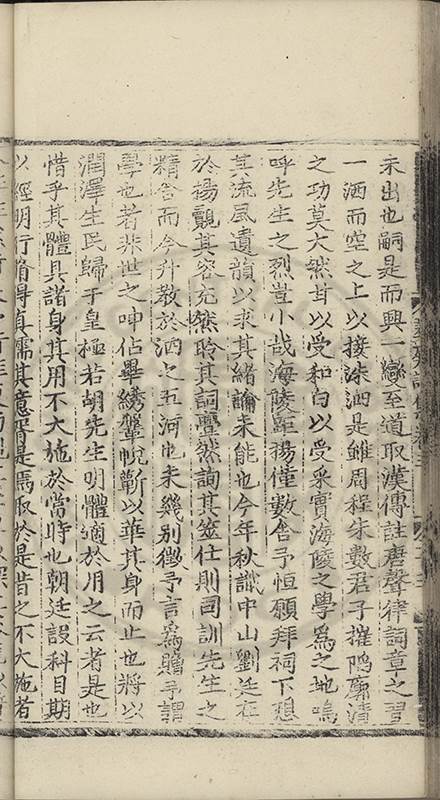 未出也嗣是而興一變至道取漢傳註唐聲律詞章之習
一洒而空之上以接洙泗是雖周程朱數君子摧陷廓清
之功莫大然甘以受和白以受采實海陵之學為之地嗚
呼先生之烈豈小哉海陵距揚僅數舍予恒願拜祠下想
其流風遺韻以求其緒論未能也今年秋識中山劉廷在
於揚覿其容充然聆其詞霅然詢其筮仕則司訓先生之
精舍而今升教於泗之五河也未幾別徵予言為贈予謂
學也者非世之呻佔畢綉鞶帨蘄以華其身而止也將以
潤澤生民歸于皇極若胡先生明體適於用之云者是也
惜乎其體具諸身其用不大施於當時也朝廷設科目期
以經明行脩得真儒其意胥是焉取於是昔之不大施者